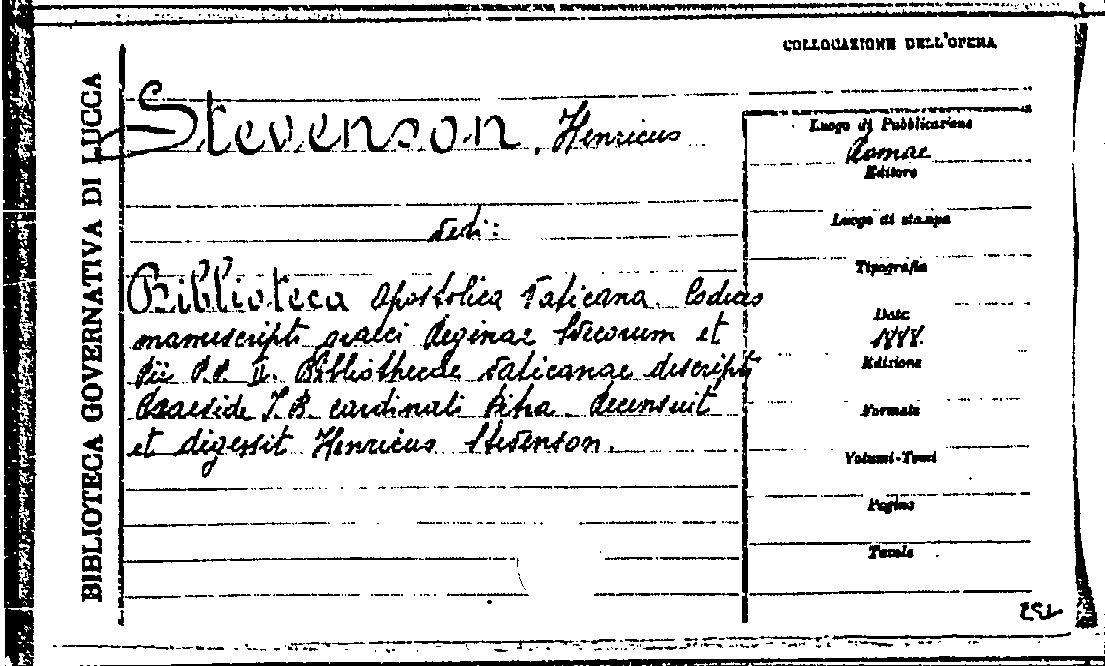 BIBLIOTECA GOVERNATIVA DI LUCCA
COLLOCAZIONE DELL'OPERA
Stevenson, Henricus
vedi:
Biblioteca Apostolica Vaticana. Codices
manuscripti graeci Reginae Svecorum et
Pii P.P. II. Bibliothecae Vaticanae descripti
Praeside I. B. cardinali Pitra. Recensuit
et digessit Henricus Stevenson.
Luogo di Pubblicazione
Romae
Editore
Luogo di stampa
Tipografia
Data
1888.
Edizione
Formato
Volumi-Tomi
Pagine
Tavole